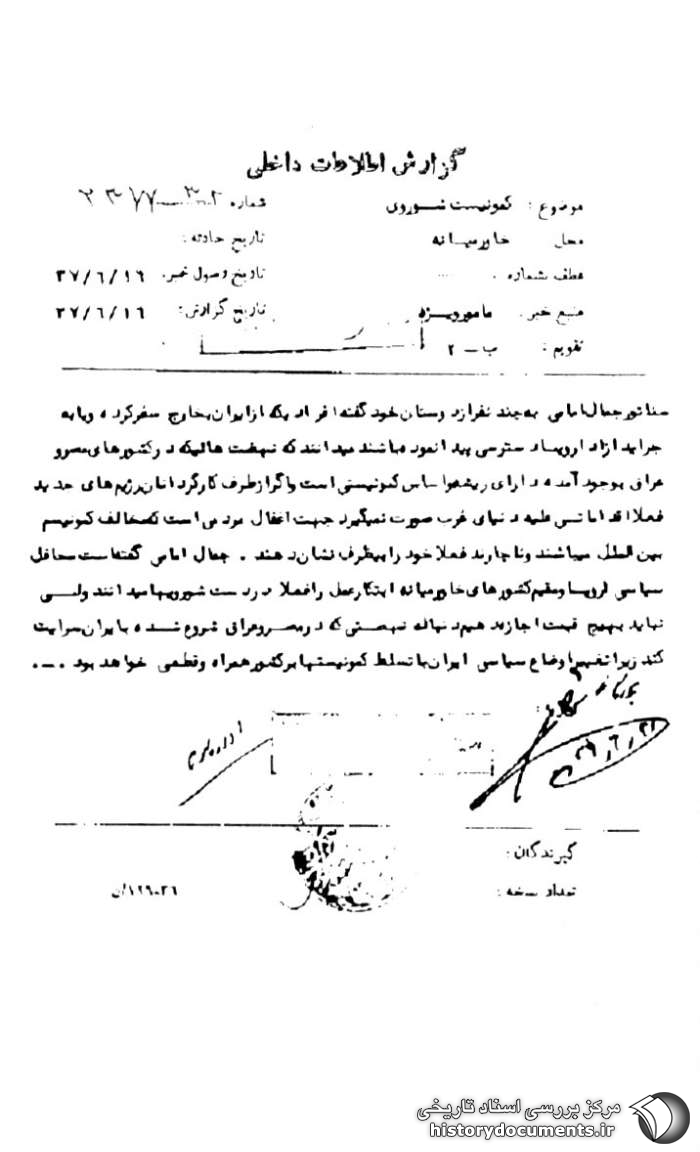 گزارش اطلاعات داخلی
موضوع : کمونیست شوروی شماره
محل خاورمیانه تاریخ حادثه :
عطف شماره . تاریخ وصول خبر. ۳۷/۶/۱۶
منبع خبر. مامورویژه تاریخ گزارش: ۳۷/۶/۱۶
تقویم : ب – ۲
سناتور جمال امامی به چند نفر از دوستان خود گفته افرادیکه از ایران بخارج سفر کرده ویا به
جراید ازاد اروپا دسترسی پیدا نموده باشند میدانند که نهضت هائیکه در کشورهای مصر و
عراق بوجود آمده دارای ریشه و اساس کمونیستی است واگر از طرف کارگردانان رژیم های جدید
فعلا اقداماتی علیه دنیای غرب صورت نمیگیرد جهت اغفال مردمی است که مخالف کمونیسم
بین المللل میباشند وناچارند فعلا خود را بیطرف نشان دهند . جمال امامی گفته است محافل
سیاسی اروپا ومقیم کشورهای خاورمیانه ابتکار عمل را فعلا در دست شورویها میدانند ولی
نباید بهیچ قیمت اجازه دهیم دنباله نهضتی که در مصر وعراق شروع شده بایران سرایت
کند زیرا تغییر اوضاع سیاسی ایران با تسلط کمونیستها بر کشور همراه وقطعی خواهد بود .-.
گیرندگان :
تعداد نسخه :
مرکز بررسی اسناد تاریخی
historydocuments.ir